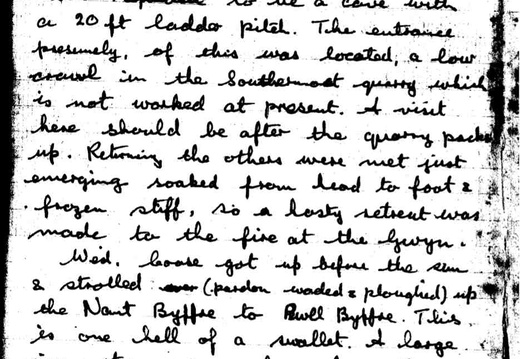 to be a cave with
a 20 ft ladder pitch. The entrance
presumely, of this was located, a low
crawl in the Southermost quarry which
is not worked at present. A visit
here should be after the quarry packs
up. Returning the others were met just
emerging soaked from head to foot &
frozen stiff, so a hasty retreat was
made to the fire at the Gwyn.
Wed. loose got up before the sun
& strolled (pardon waded & ploughed) up
the Nant Byffre to Pwll Byffre. This
is one hell of a swallet. A large